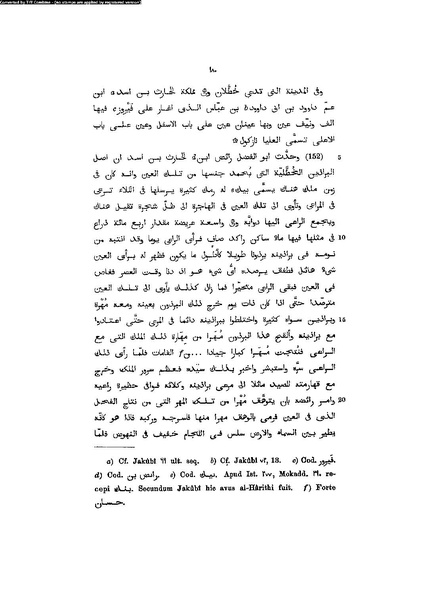 Converted by Tiff Combine - (no stamps are applied by registered version)
١٨٠
وفى المدينة التى تدعى خُطَّلان وفى مملكة الحارث بن اسد a ابن
عمّ داوود بن ابى داوود b بن عبّاس الذى اغار على فيروز c فيها
الف ونيّف عين وبها عينان عين على باب الاسفل وعين على باب
الاعلى تسمّى العليا نازكول
5 (152) وحدّث ابو الفضل رائض ابن d الحارث بن اسد ان اصل
البراذين الخُطَّليّة التى يُحمد جنسها من تلك العين وانه كان فى
زمن ملك هناك يسمّى بيك e له رمك كثيرة يرسلها فى الكلاء ترعى
فى المراعى وتأوى الى تلك العين فى الهاجرة الى ظلّ شجرة تقيل عنك
ويجتمع الراعى اليها دوابّه وفى واسعة عريضة مقدار اربع مائة ذراع
10 فى مثلها فيها ماء ساكن راكد صاف فرأى الراعى يوما وقد انتبه من
نومه فى براذينه برذونا طويلا كأنبل ما يكون فظهر له برأى العين
شىء هائل فطفق يرصده أىّ شىء هو اذ دنا وقت العصر فغاص
فى العين فبقى الراعى متحيّرا فما زال كذلك يأوى الى تلك العين
مترصّدا حتّى اذا كان ذات يوم خرج ذلك البرذون بعينه ومعه مُهْرة
15 وبراذين سواء كثيرة واختلطوا ببراذينه دائما فى المرعى حتّى اعتادوا
مع براذينه وألقح هذا البرذون مُهرا من مِهارة تلك الملك التى مع
الراعى فنُتجت مُهرا كبارا جيادا ...f القامات فلمّا رأى ذلك
الراعى سرَّه واستبشر واخبر بذلك سيّده فعظم سرور الملك وخرج
مع قهارمته للصيد مثلا الى مرعى براذينه وكلائه فوافى حظيرة راعيه
20 وامر رائضه بان يتوهّف مُهرا من تلك المهر التى من نتاج الفحل
الذى فى العين فرمى بالوهاف مهرا منها فاسرجه وركبه فاذا هو كأنّه
يطير بين السماء والارض سلس فى اللجام خفيف فى النهوض فلمّا
a) Cf. Jakûbî ٢٩١ ult. seq. b) Cf. Jakûbî ٢٩٢, 13. c) Cod. فيروز.
d) Cod. رائض بن. e) Cod. نيك. Apud Ist. ٢٧٧, Mokadd. re-
cepi بنك. Secundum Jakûbî hic avus al-Hârithi fuit. f) Forte
حسان.